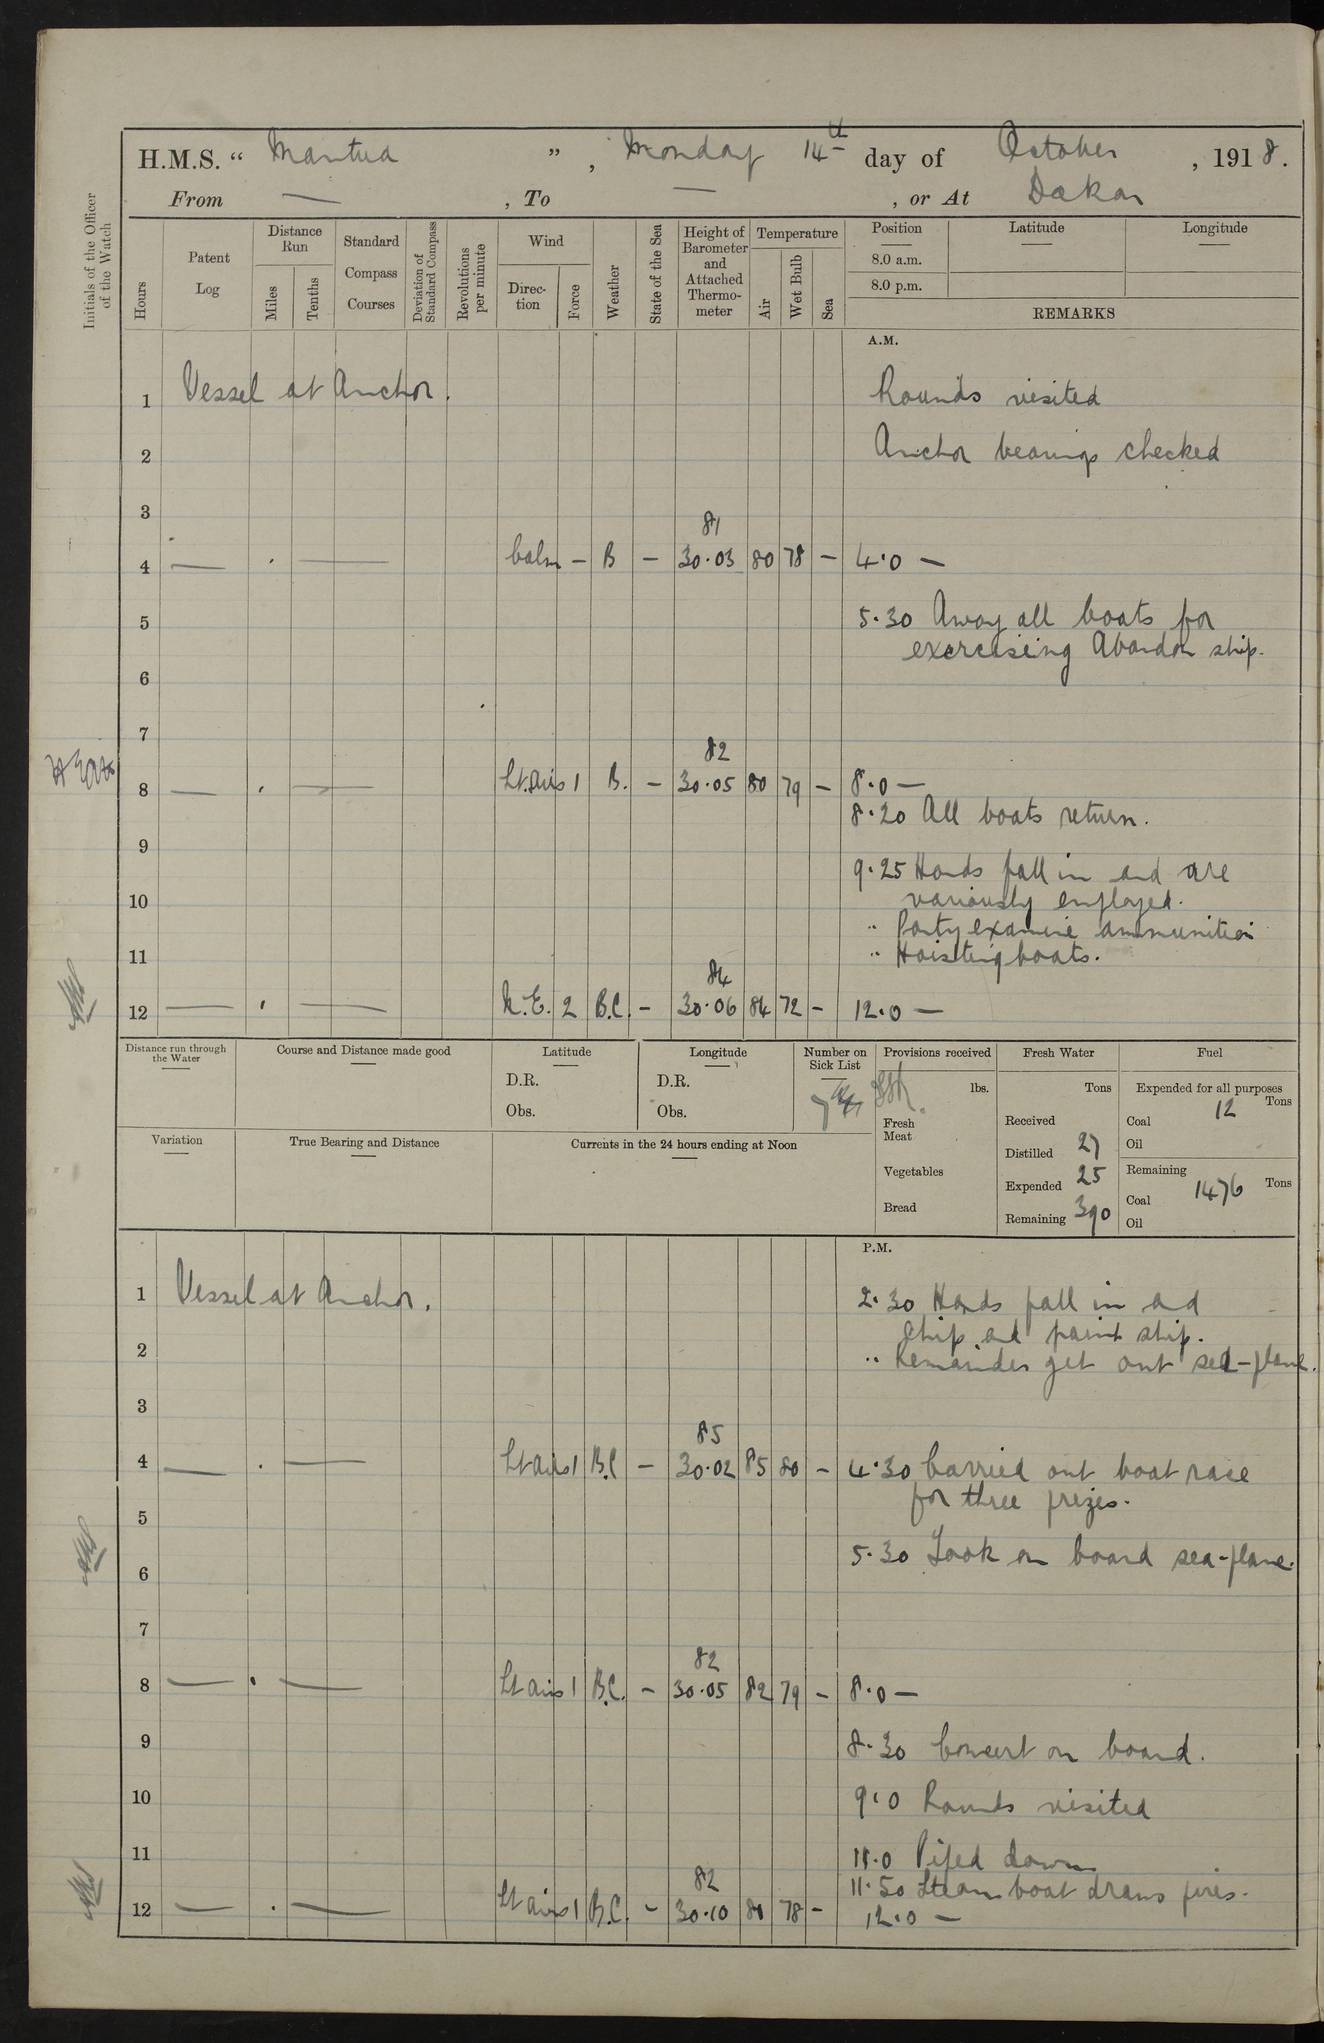 H.M.S. “ Mantua ” , Monday 14th day of October , 1918.
From — , To — , or At Dakar
Initials of the Officer of the Watch
Hours
Patent Log
Distance Run
Miles
Tenths
Standard Compass Courses
Deviation of Standard Compass
Revolutions per minute
Wind
Direction
Force
Weather
State of the Sea
Height of Barometer and Attached Thermometer
Temperature
Air
Wet Bulb
Sea
Position
Latitude
Longitude
8.0 a.m.
8.0 p.m.
REMARKS
A.M.
1 Vessel at Anchor. Rounds visited
2 Anchor bearings checked
3
81
4 — . — Calm – B – 30.03 80 78 – 4.0 —
5 5.30 Away all boats for
exercising Abandon ship.
6
7
82
8 — . — Lt. airs 1 B. – 30.05 80 79 – 8.0 —
8.20 All boats return.
9
9.25 Hands fall in and are
10 variously employed.
" Party examine ammunition
11 " Hoisting boats.
84
12 — . — N.E. 2 B.C. – 30.06 84 72 – 12.0 —
Distance run through the Water
Course and Distance made good
Latitude
D.R.
Obs.
Longitude
D.R.
Obs.
Number on Sick List
7
Provisions received
lbs.
Fresh Meat
Vegetables
Bread
Fresh Water
Tons
Received
Distilled 27
Expended 25
Remaining 390
Fuel
Expended for all purposes
Tons
Coal 12
Oil
Remaining
Tons
Coal 1476
Oil
Variation
True Bearing and Distance
Currents in the 24 hours ending at Noon
P.M.
1 Vessel at Anchor. 2.30 Hands fall in and
chip and paint ship.
2 " Remainder get out sea-plane.
3
85
4 — . — Lt airs 1 B.C – 30.02 85 80 – 4.30 Carried out boat race
for three prizes.
5
5.30 Took on board sea-plane.
6
7
82
8 — . — Lt airs 1 B.C. – 30.05 82 79 – 8.0 —
9 8.30 Concert on board.
10 9.0 Rounds visited
11 11.0 Piped down
82 11.50 Steam boat draws fires.
12 — . — Lt airs 1 B.C. – 30.10 78 – 12.0 —